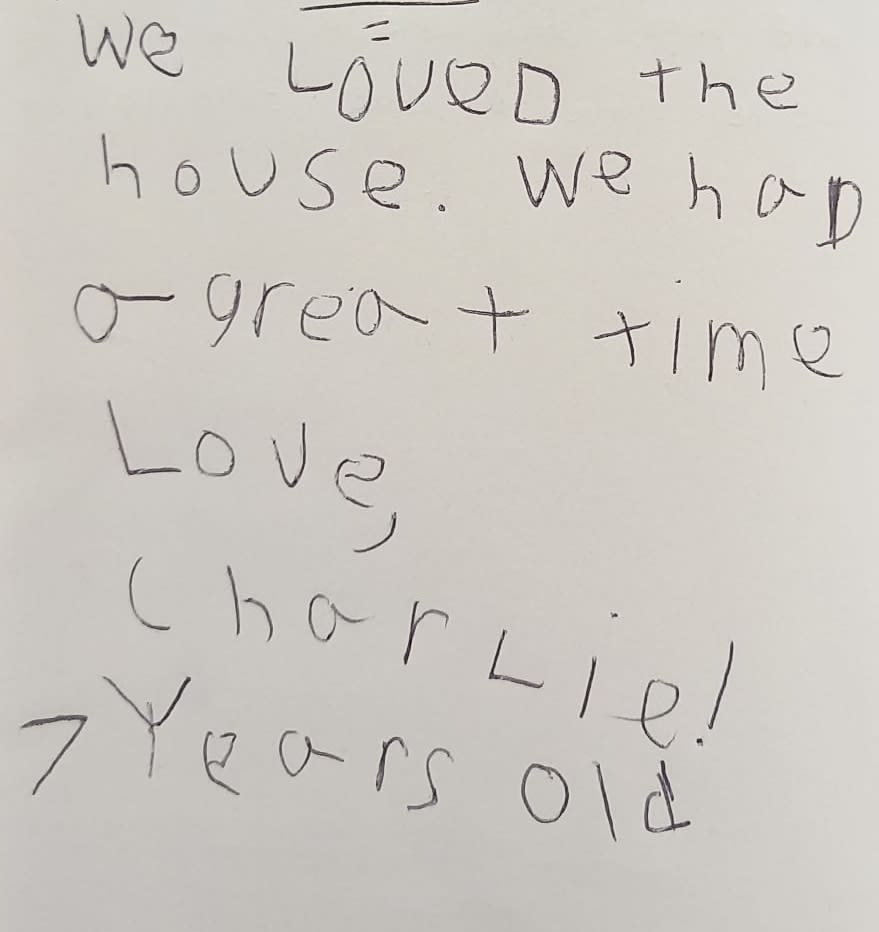 we LOVED the
house. we haD
a great time
Love,
CharLie!
7 Years old